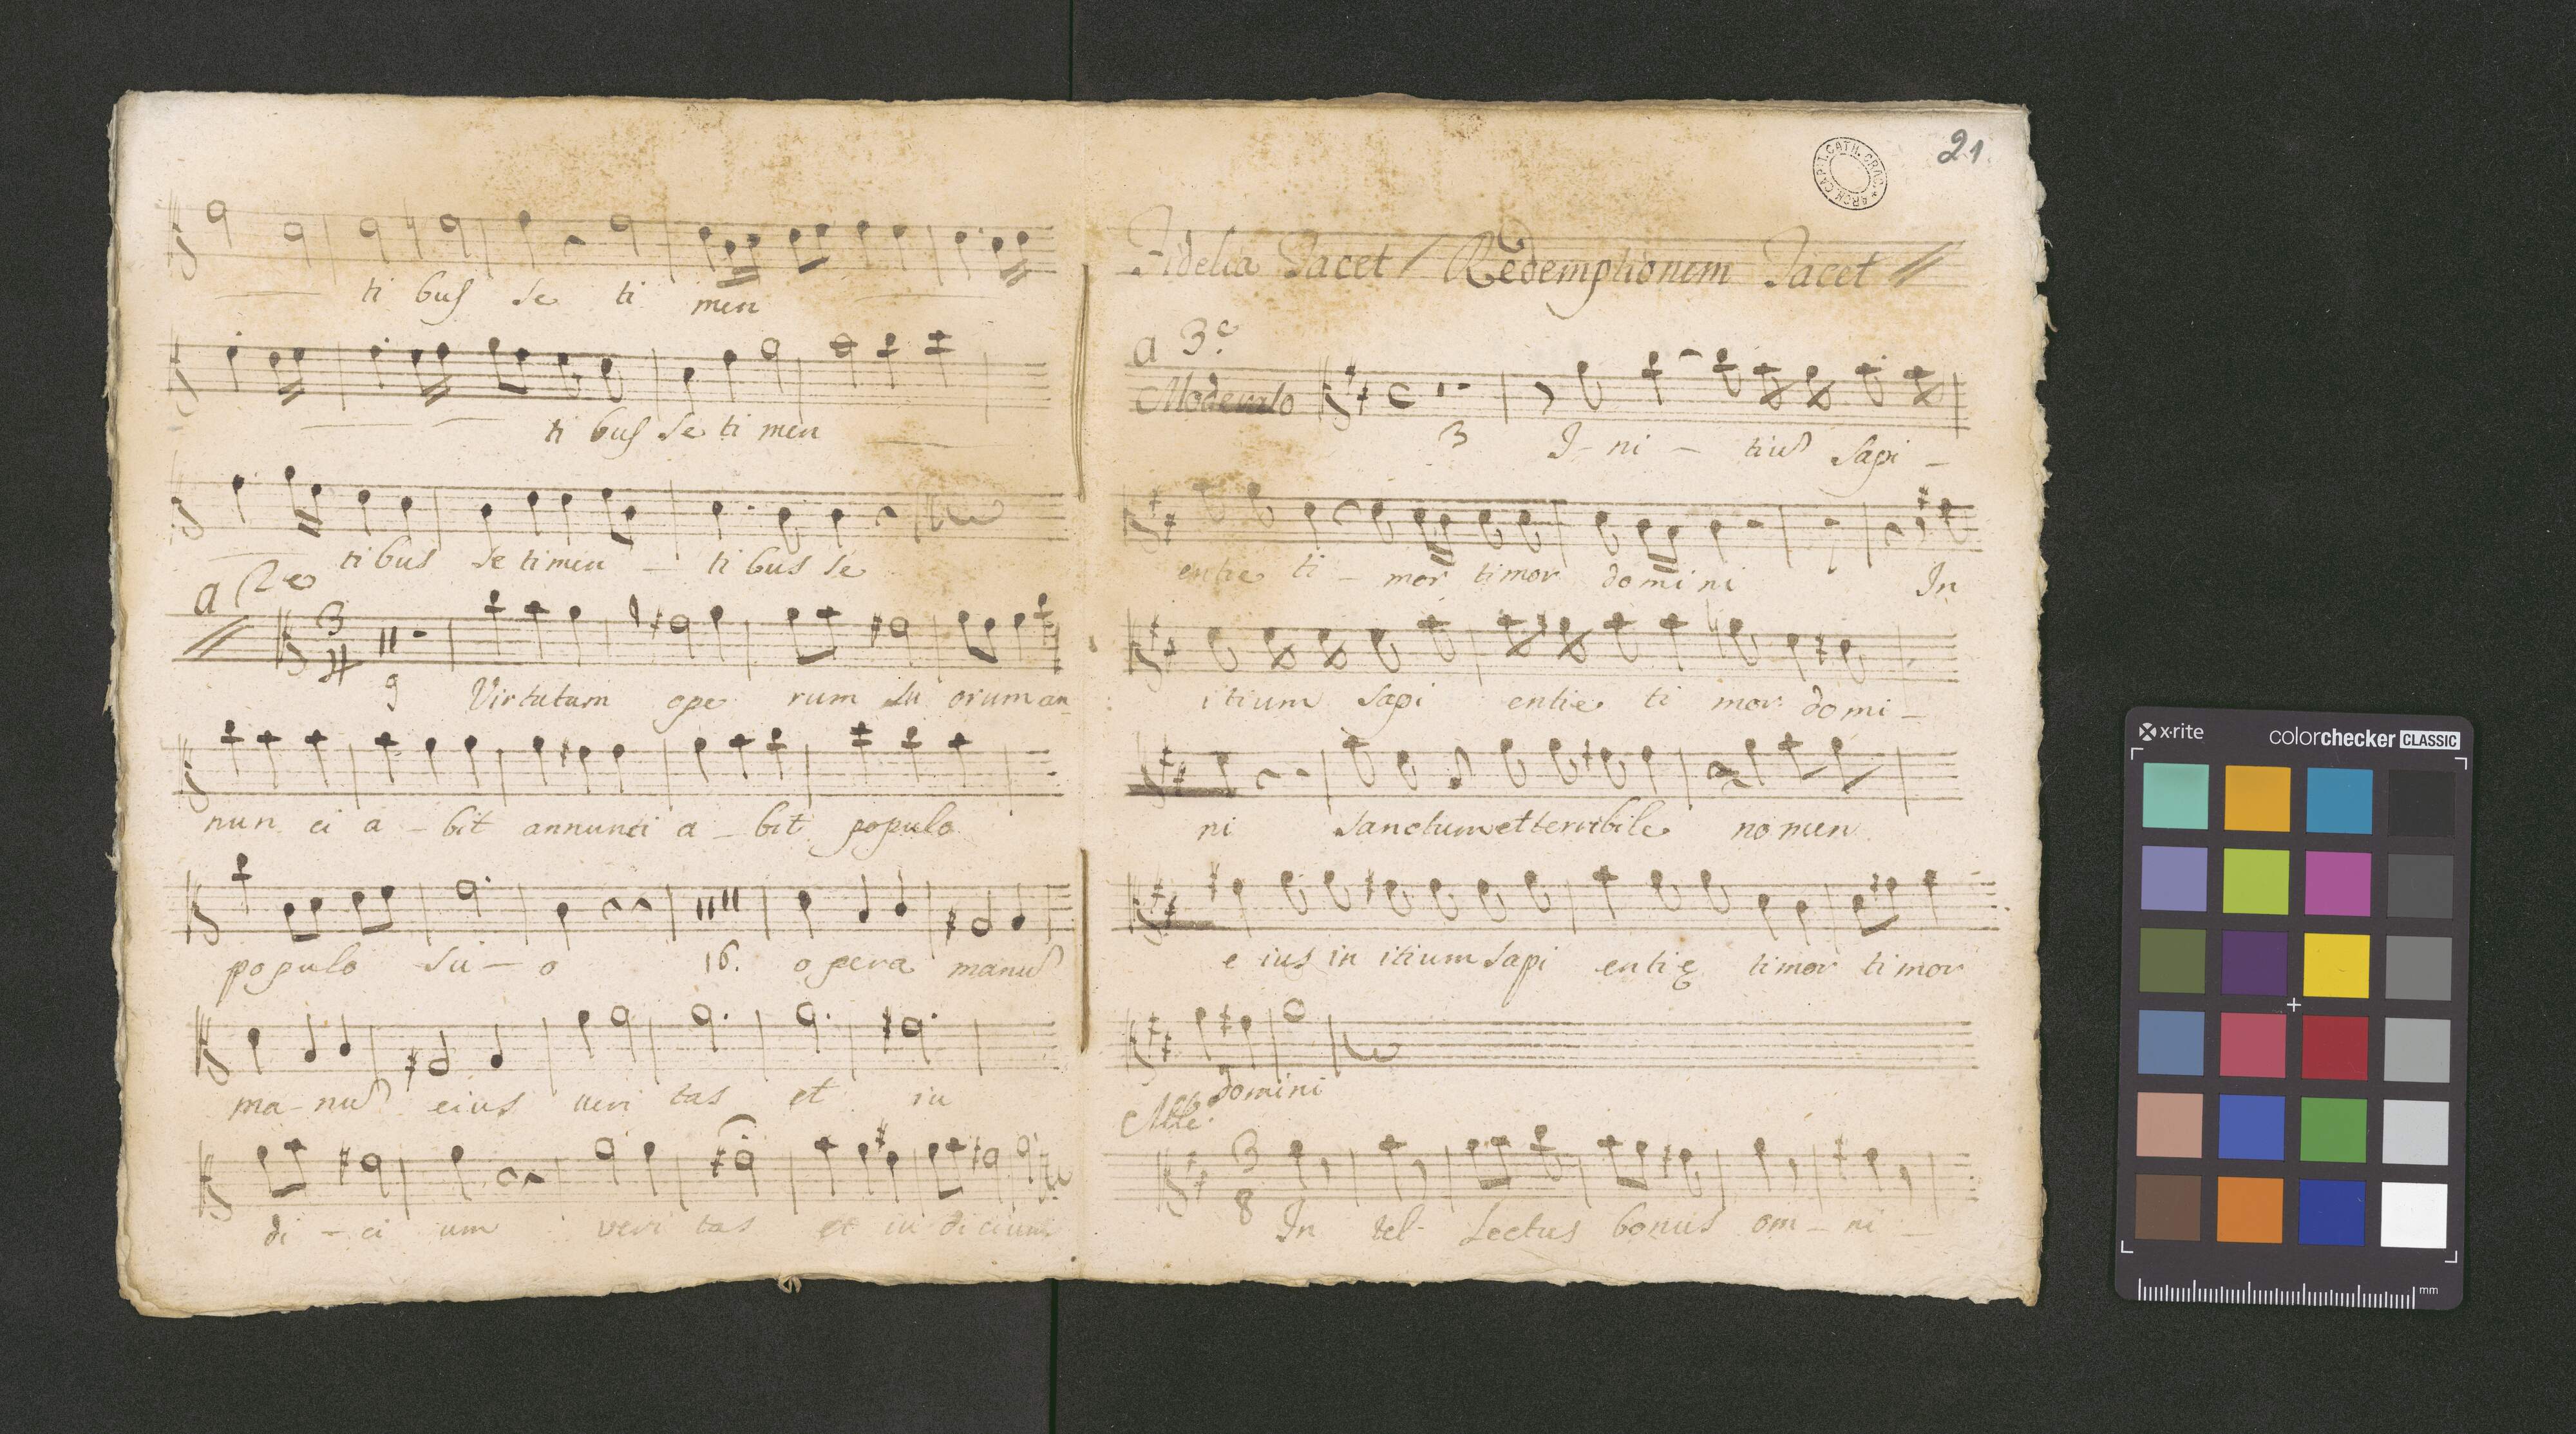 ti bus se ti men
ti bus se ti men
ti bus se timen - ti bus se
a 2e
3
9 Virtutum ope rum su orum an-
nun ci a - bit annunti a - bit populo
populo su - o 16. opera manuū
ma - nuū eius veri tas et iu
di - ci um veri tas et iu dicium
21
ARCH. CAPIT. CATH. CRAC.
Fidelia Tacet / Redemptionem Tacet //
a 3e
Moderato
3 I - ni - tiuū sapi -
entie ti - mor timor domini In
itium sapi entie ti mor domi -
ni sanctum et terribile nomen
e ius in itium sapi entię timor timor
domini
Alle.
3
8
In tel - lectus bonus om - ni -
x·rite colorchecker CLASSIC
mm